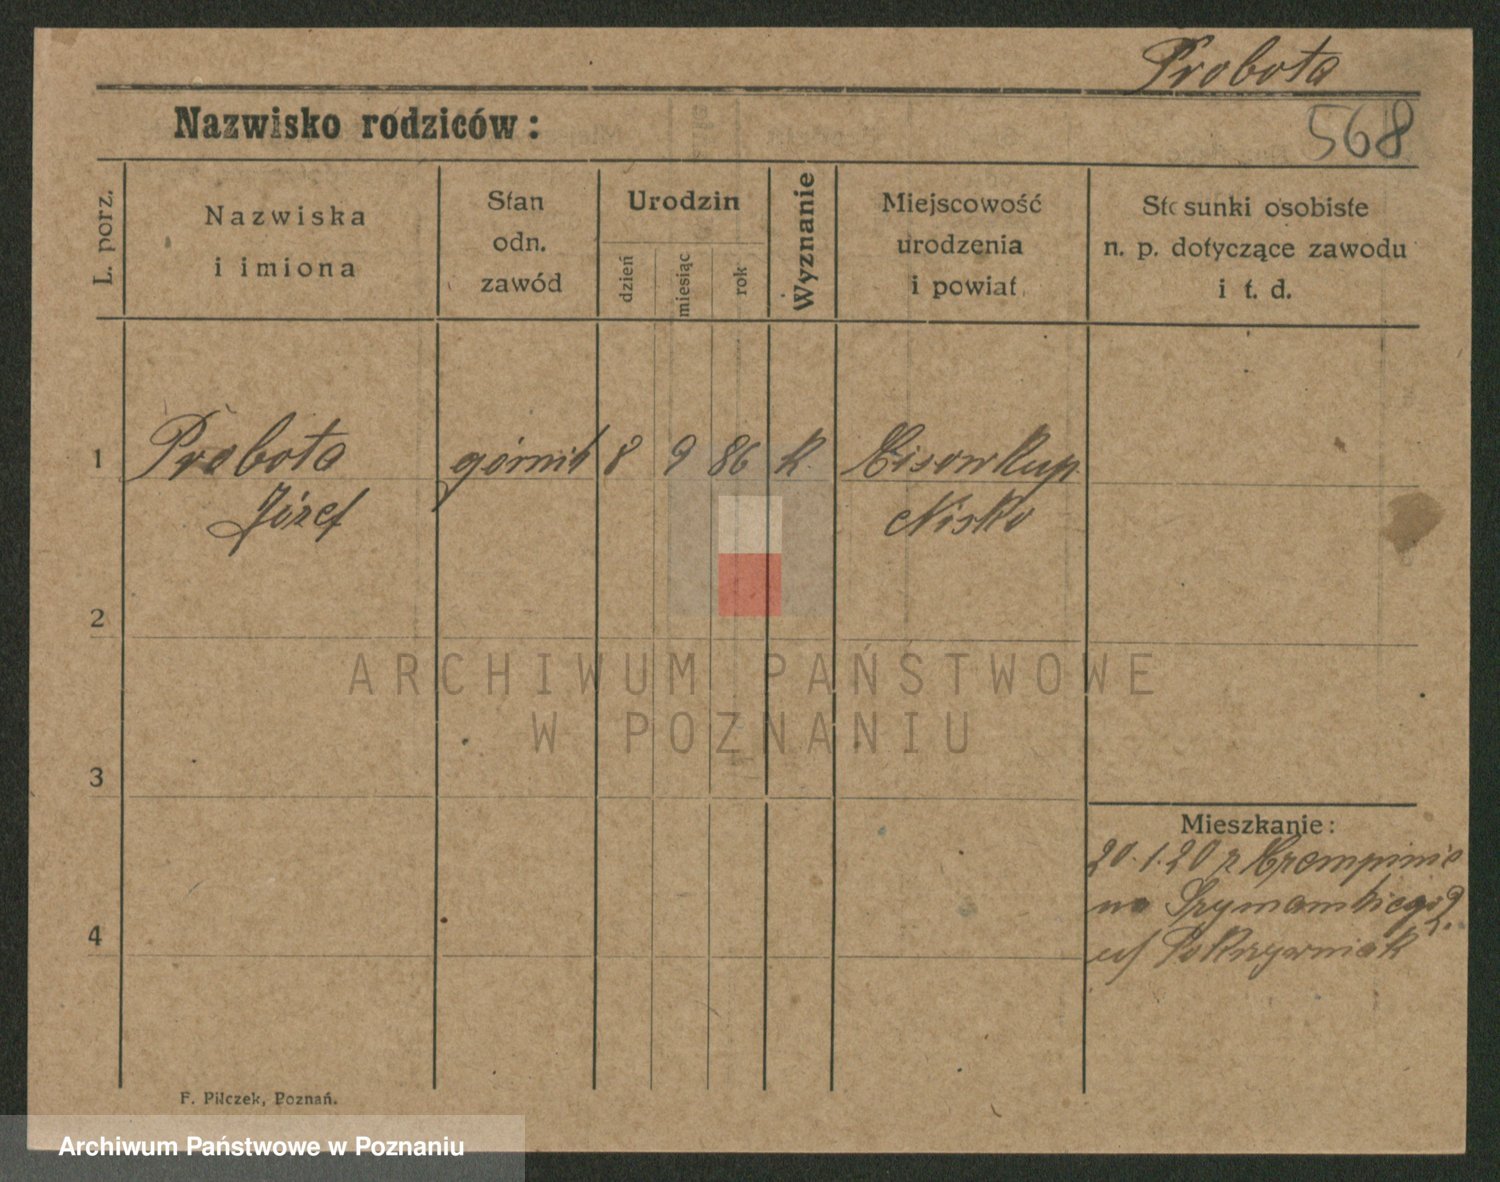 Probota
Nazwisko rodziców:
568
L. porz.
Nazwiska
i imiona
Stan
odn.
zawód
Urodzin
dzień
miesiąc
rok
Wyznanie
Miejscowość
urodzenia
i powiat
Stosunki osobiste
n. p. dotyczące zawodu
i t. d.
1 Probota górnik 8 9 86 k.
Józef Nisko
2
ARCHIWUM PAŃSTWOWE
W POZNANIU
3
Mieszkanie:
20.1.20 z
4
F. Pilczek, Poznań.
Archiwum Państwowe w Poznaniu